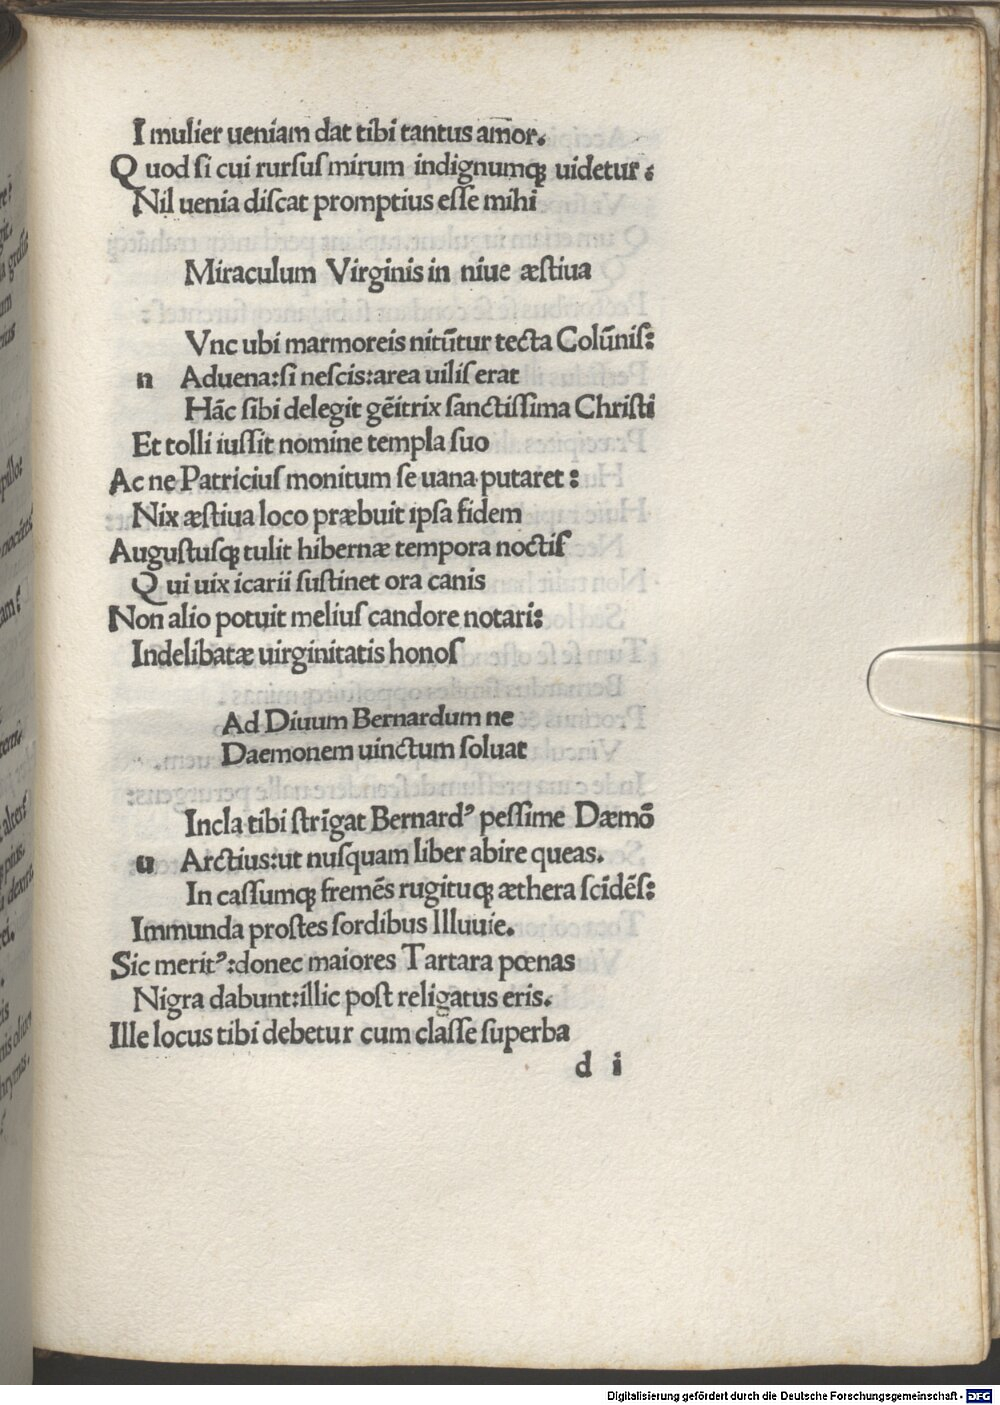 I mulier ueniam dat tibi tantus amor.
Q uod ſi cui rurſuſ mirum indignumqꝫ uidetur :
Nil uenia diſcat promptius eſſe mihi
Miraculum Virginis in niue æſtiua
Vnc ubi marmoreis nitūtur tecta Colūniſ:
n Aduena:ſi neſcis:area uiliſ erat
Hāc ſibi delegit gēitrix ſanctiſſima Chriſti
Et tolli iuſſit nomine templa ſuo
Ac ne Patriciuſ monitum ſe uana putaret :
Nix æſtiua loco præbuit ipſa fidem
Auguſtuſqꝫ tulit hibernæ tempora noctiſ
Q ui uix icarii ſuſtinet ora canis
Non alio potuit meliuſ candore notari:
Indelibatæ uirginitatis honoſ
Ad Diuum Bernardum ne
Daemonem uinctum ſoluat
Incla tibi ſtrīgat Bernardꝰ peſſime Dæmō
u Arctius:ut nuſquam liber abire queas.
In caſſumqꝫ fremēs rugituqꝫ æthera ſcīdēſ:
Immunda proſtes ſordibus Illuuie.
Sic meritꝰ:donec maiores Tartara pœnas
Nigra dabunt:illic poſt religatus eris.
Ille locus tibi debetur cum claſſe ſuperba
d i
Digitalisierung gefördert durch die Deutsche Forschungsgemeinschaft - DFG